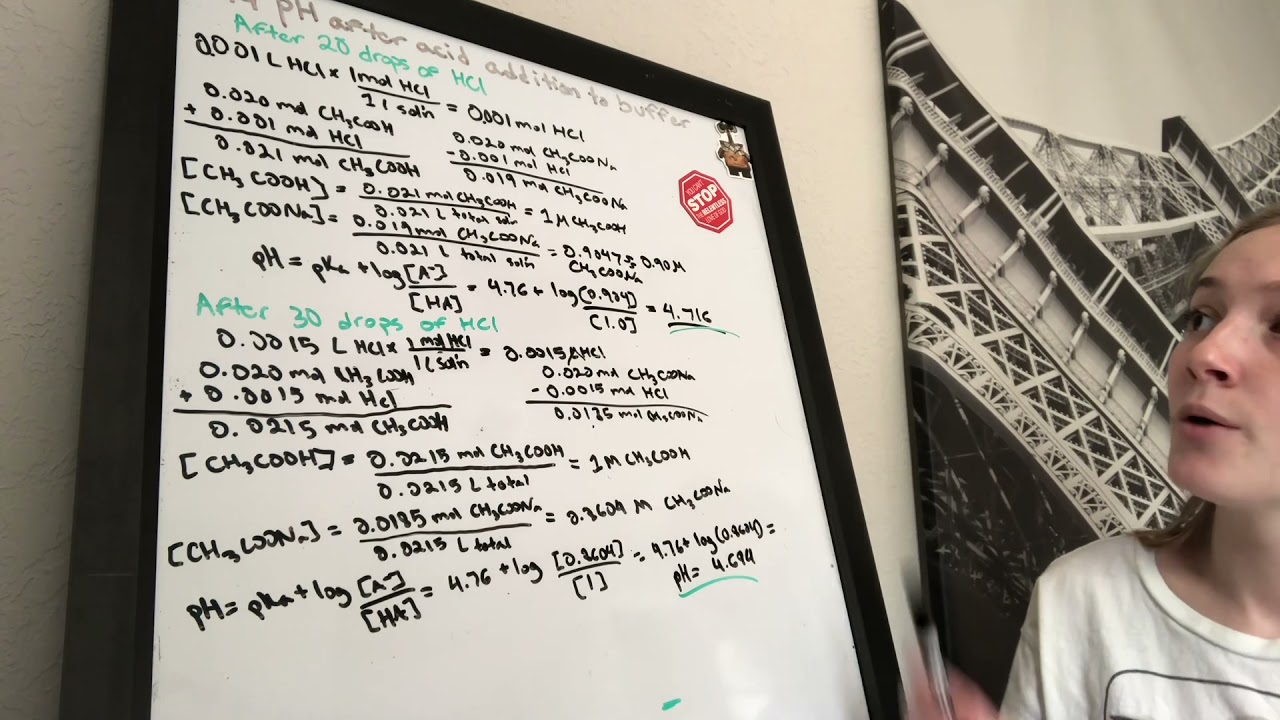 pH after acid addition to buffer
After 20 drops of HCl
0.001 L HCl x 1 mol HCl / 1 L sol'n = 0.001 mol HCl
0.020 mol CH3COOH
+ 0.001 mol HCl
0.021 mol CH3COOH
0.020 mol CH3COONa
- 0.001 mol HCl
0.019 mol CH3COONa
[CH3COOH] = 0.021 mol CH3COOH / 0.021 L total sol'n = 1 M CH3COOH
[CH3COONa] = 0.019 mol CH3COONa / 0.021 L total sol'n = 0.9047 ≈ 0.90 M
CH3COONa
pH = pKa + log [A-] / [HA] = 4.76 + log (0.904) / [1.0] = 4.716
After 30 drops of HCl
0.0015 L HCl x 1 mol HCl / 1 L sol'n = 0.0015 HCl
0.020 mol CH3COOH
+ 0.0015 mol HCl
0.0215 mol CH3COOH
0.020 mol CH3COONa
- 0.0015 mol HCl
0.0185 mol CH3COONa
[CH3COOH] = 0.0215 mol CH3COOH / 0.0215 L total = 1 M CH3COOH
[CH3COONa] = 0.0185 mol CH3COONa / 0.0215 L total = 0.8604 M CH3COONa
pH = pKa + log [A-] / [HA] = 4.76 + log [0.8604] / [1] = 4.76 + log (0.8604) =
pH = 4.694
YOU CAN'T
STOP
THE RELENTLESS
LOVE OF GOD